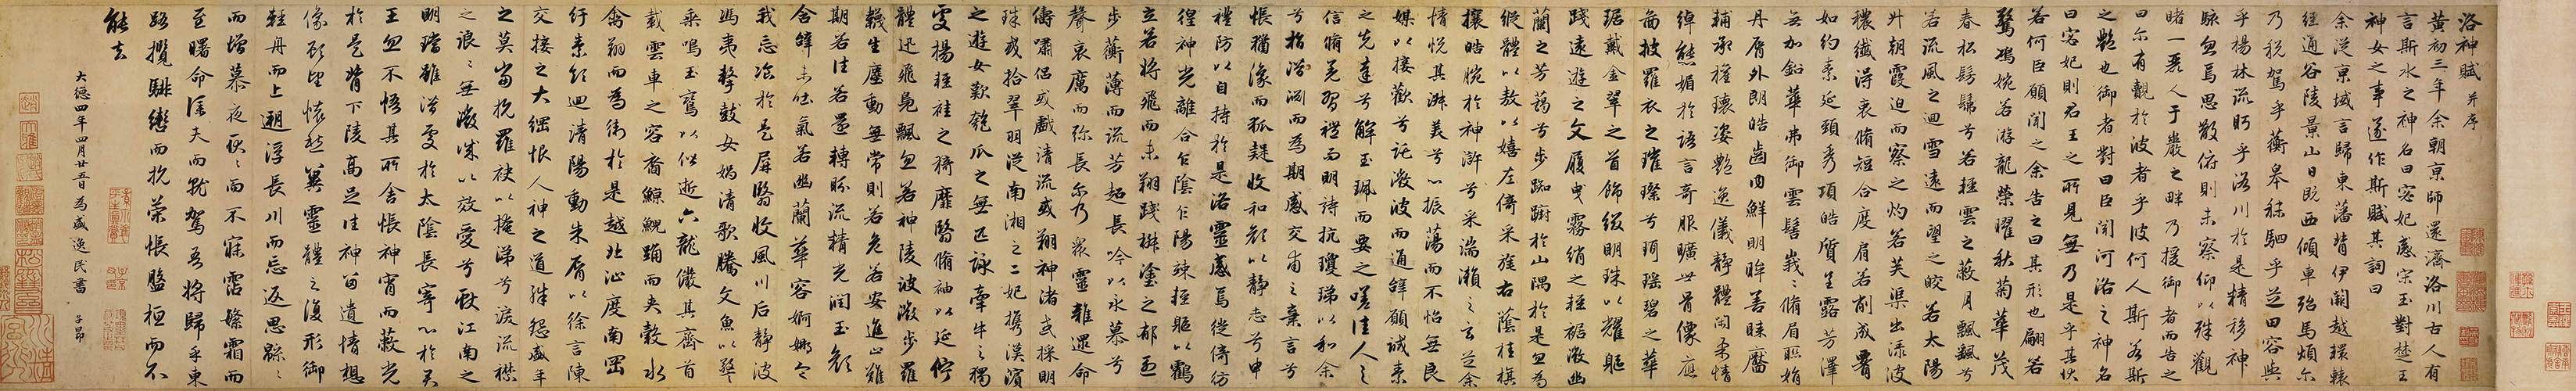 洛神賦 并序
黃初三年余朝京師還濟洛川古人有
言斯水之神名曰宓妃感宋玉對楚王
神女之事遂作斯賦其詞曰
余從京域言歸東藩背伊闕越轘轅
經通谷陵景山日既西傾車殆馬煩尔
乃稅駕乎蘅皋秣駟乎芝田容與
乎楊林流眄乎洛川於是精移神
駭忽焉思散俯則未察仰以殊觀
睹一麗人于巖之畔乃援御者而告之
曰尔有覿於彼者乎彼何人斯若斯
之艷也御者對曰臣聞河洛之神名
曰宓妃則君王之所見無乃是乎其狀
若何臣願聞之余告之曰其形也翩若
驚鴻婉若游龍榮曜秋菊華茂
春松髣髴兮若輕雲之蔽月飄飄兮
若流風之迴雪遠而望之皎若太陽
升朝霞迫而察之灼若芙渠出淥波
穠纖得衷脩短合度肩若削成
如約素延頸秀項皓質呈露芳澤
無加鉛華弗御雲髻峩〻脩眉聯娟
丹脣外朗皓齒內鮮明眸善睞靨
輔承權瓌姿艷逸儀靜體閑柔情
綽態媚於語言奇服曠世骨像應
圖披羅衣之璀璨兮珥瑤碧之華
琚戴金翠之首飾綴明珠以耀軀
踐遠遊之文履曳霧綃之輕裾微幽
蘭之芳藹兮步踟躕於山隅於是忽焉
縱體以敖以嬉左倚采旄右蔭桂旗
攘皓腕於神滸兮采湍瀨之玄芝余
情悅其淑美兮心振蕩而不怡無良
媒以接歡兮託微波而通辭願誠素
之先達兮解玉珮而要之嗟佳人之
信脩羌習禮而明詩抗瓊珶以和余
兮指潛淵而為期感交甫之棄言兮
悵猶豫而狐疑收和顏以靜志兮申
禮防以自持於是洛靈感焉徙倚彷
徨神光離合乍陰乍陽竦輕軀以鶴
立若將飛而未翔踐椒塗之郁烈
步蘅薄而流芳超長吟以永慕兮
聲哀厲而弥長尔乃眾靈雜遝命
儔嘯侶或戲清流或翔神渚或採明
珠或拾翠羽從南湘之二妃攜漢濱
之遊女歎匏瓜之無匹詠牽牛之獨
處揚輕袿之猗靡翳脩袖以延佇
體迅飛鳧飄忽若神陵波微步羅
韈生塵動無常則若危若安進止難
期若往若還轉眄流精光潤玉顏
含辭未吐氣若幽蘭華容婀娜令
我忘飡於是屏翳收風川后靜波
馮夷擊鼓女媧清歌騰文魚以警
乘鳴玉鸞以偕逝六龍儼其齊首
載雲車之容裔鯨鯢踊而夾轂水
禽翔而為衛於是越北沚度南岡
紆素領迴清陽動朱脣以徐言陳
交接之大綱恨人神之道殊怨盛年
之莫當抗羅袂以掩涕兮淚流襟
之浪〻無微誠以效愛兮獻江南之
明璫雖潛處於太陰長寄心於君
王忽不悟其所舍悵神宵而蔽光
於是背下陵高足往神留遺情想
像顧望懷愁冀靈體之復形御
輕舟而上遡浮長川而忘返思綿〻
而增慕夜耿〻而不寐霑繁霜而
至曙命僕夫而就駕吾將歸乎東
路攬騑轡而抗策悵盤桓而不
能去
大德四年四月廿五日為盛逸民書 子昂